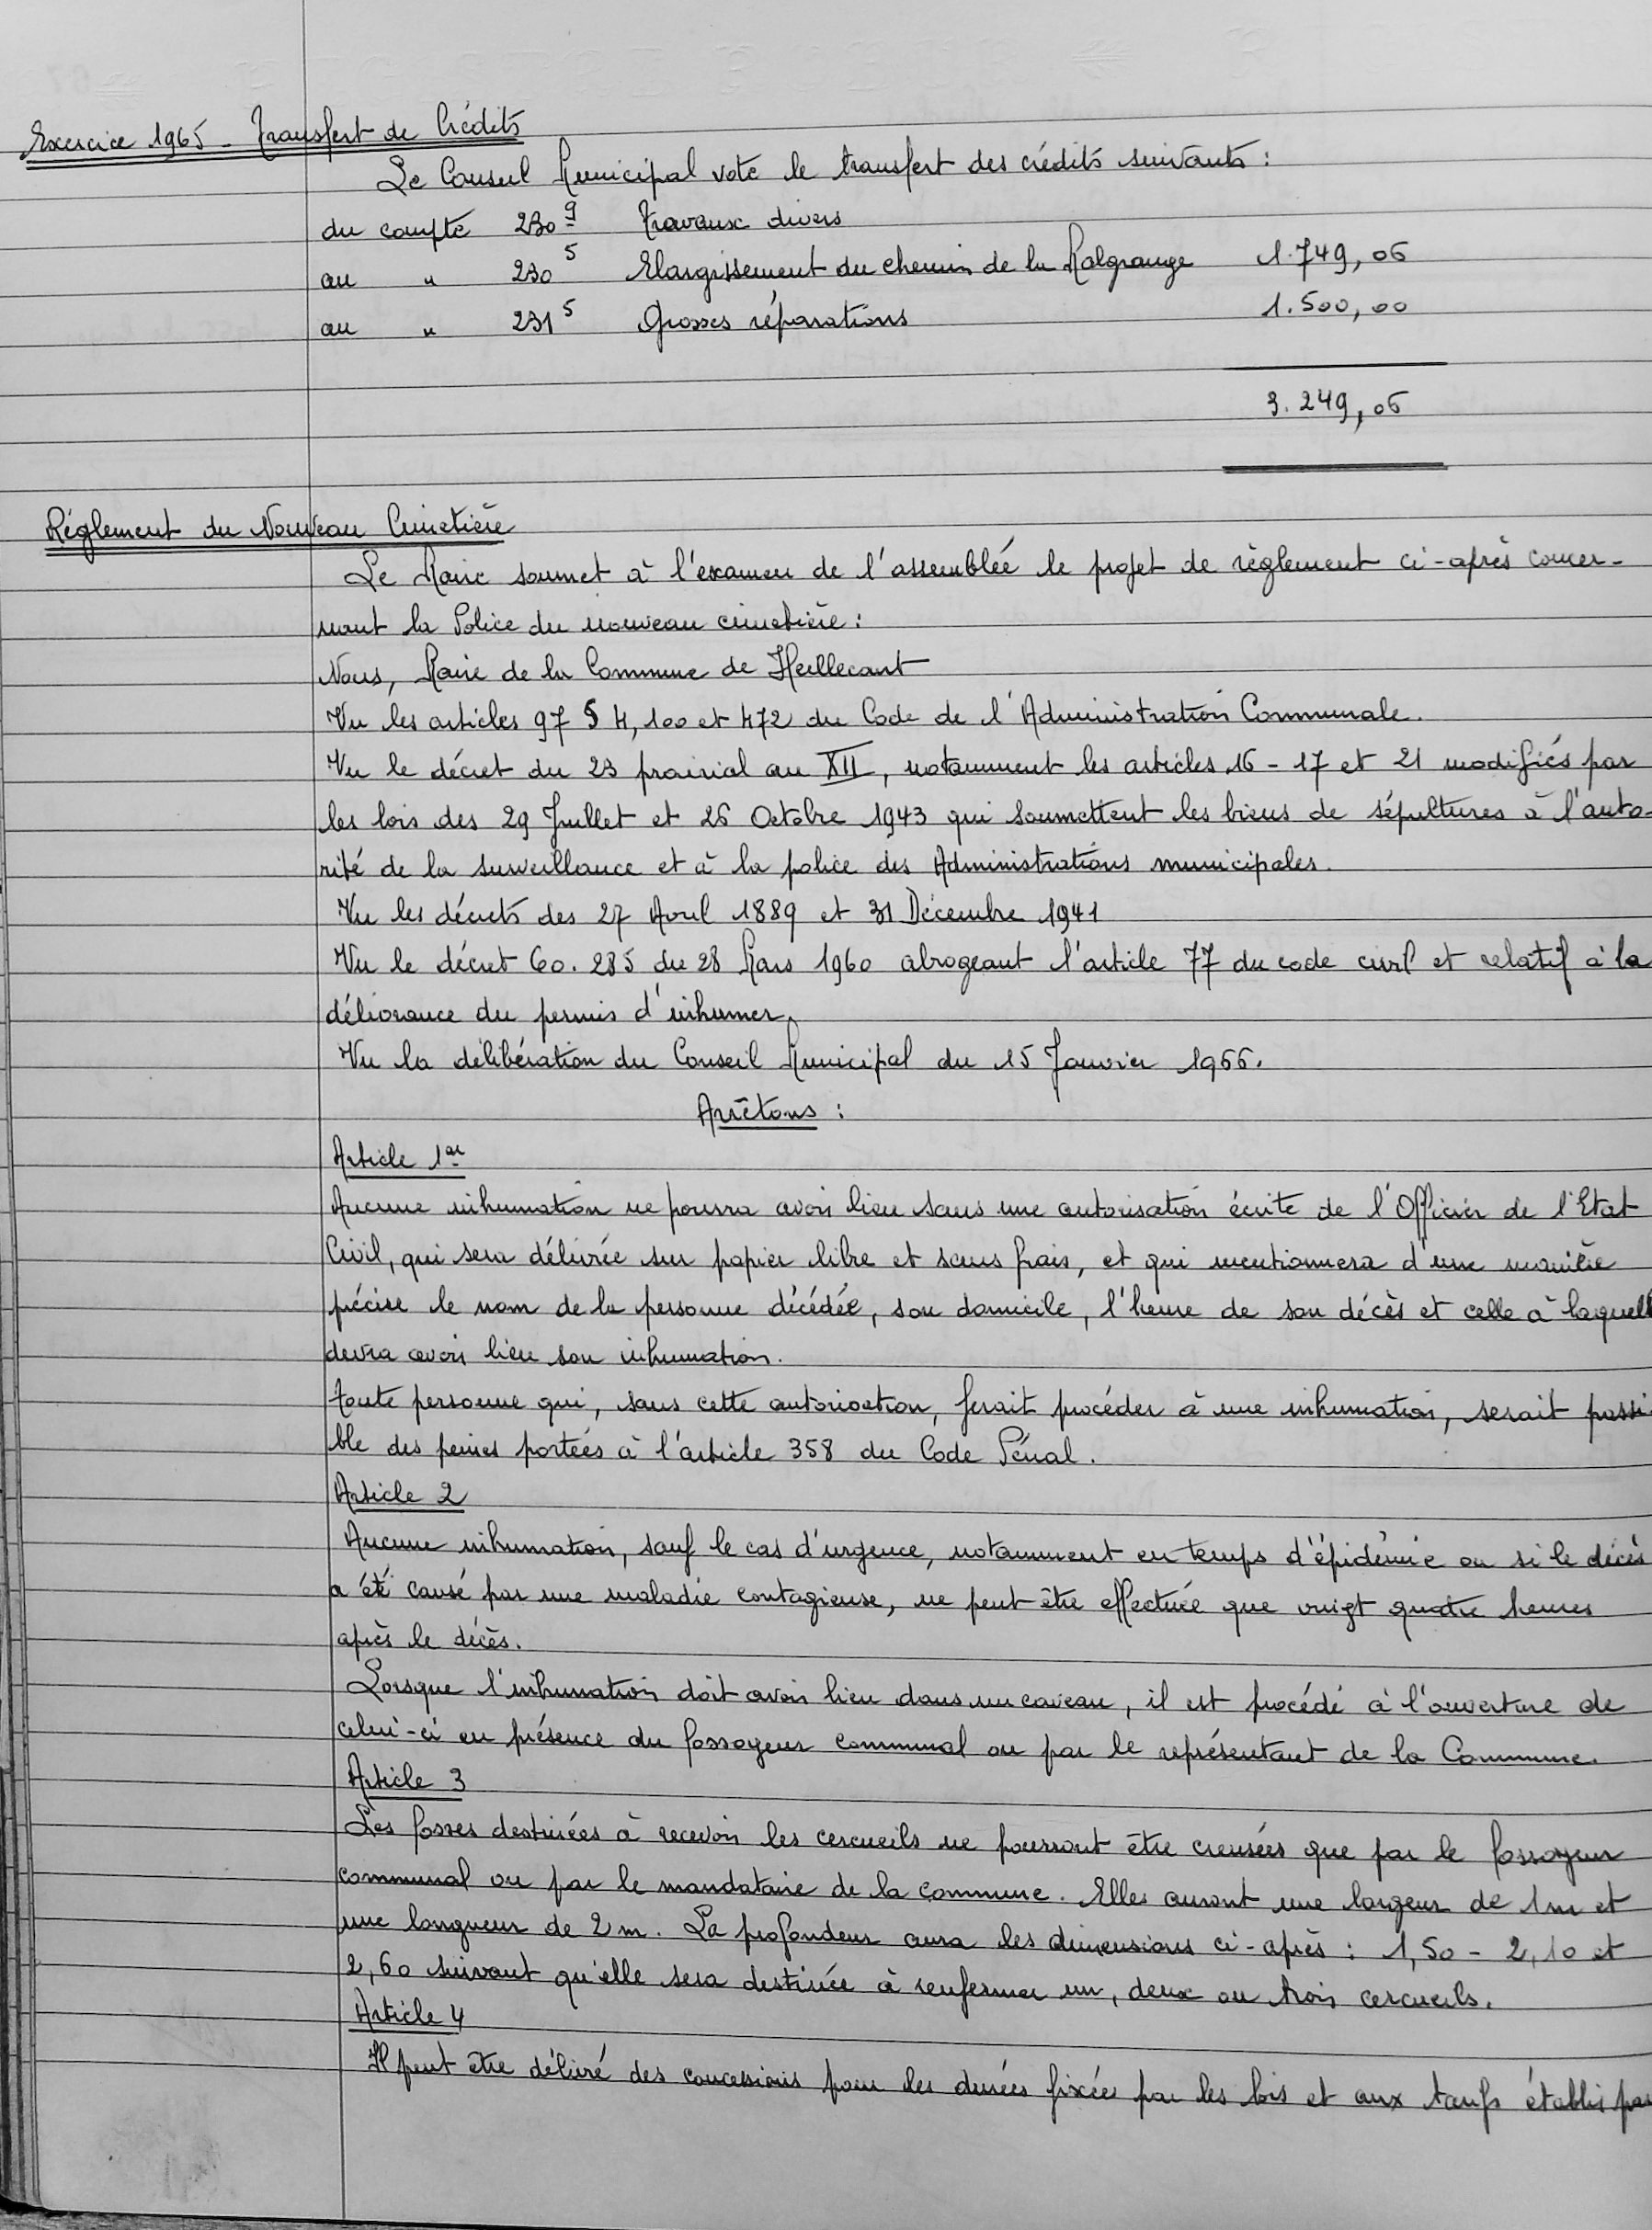 Exercice 1965 - Transfert de Crédits
Le Conseil Municipal vote le transfert des crédits suivants :
du compte 230 9 Travaux divers
au " 230 5 Elargissement du chemin de la Malgrange 1.749,06
au " 231 5 Grosses réparations 1.500,00
3.249,06
Réglement du Nouveau Cimetière
Le Maire soumet à l'examen de l'assemblée le projet de règlement ci-après concer-
nant la Police du nouveau cimetière :
Nous, Maire de la Commune de Heillecourt
Vu les articles 97 § 4, 100 et 472 du Code de l'Administration Communale.
Vu le décret du 23 prairial an XII, notamment les articles 16 - 17 et 21 modifiés par
les lois des 29 Juillet et 26 Octobre 1943 qui soumettent les lieux de sépultures à l'auto-
rité de la surveillance et à la police des Administrations municipales.
Vu les décrets des 27 Avril 1889 et 31 Décembre 1941
Vu le décret 60.285 du 28 Mars 1960 abrogeant l'article 77 du code civil et relatif à la
délivrance du permis d'inhumer.
Vu la délibération du Conseil Municipal du 15 Janvier 1966.
Arrêtons :
Article 1er
Aucune inhumation ne pourra avoir lieu sans une autorisation écrite de l'Officier de l'Etat
Civil, qui sera délivrée sur papier libre et sans frais, et qui mentionnera d'une manière
précise le nom de la personne décédée, son domicile, l'heure de son décès et celle à laquelle
devra avoir lieu son inhumation.
Toute personne qui, sans cette autorisation, ferait procéder à une inhumation, serait passi-
ble des peines portées à l'article 358 du Code Pénal.
Article 2
Aucune inhumation, sauf le cas d'urgence, notamment en temps d'épidémie ou si le décès
a été causé par une maladie contagieuse, ne peut être effectuée que vingt quatre heures
après le décès.
Lorsque l'inhumation doit avoir lieu dans un caveau, il est procédé à l'ouverture de
celui-ci en présence du fossoyeur communal ou par le représentant de la Commune.
Article 3
Les fosses destinées à recevoir les cercueils ne pourront être creusées que par le fossoyeur
communal ou par le mandataire de la commune. Elles auront une largeur de 1m et
une longueur de 2m. La profondeur aura les dimensions ci-après : 1,50 - 2,10 et
2,60 suivant qu'elle sera destinée à renfermer un, deux ou trois cercueils.
Article 4
Il peut être délivré des concessions pour les durées fixées par les lois et aux tarifs établis par